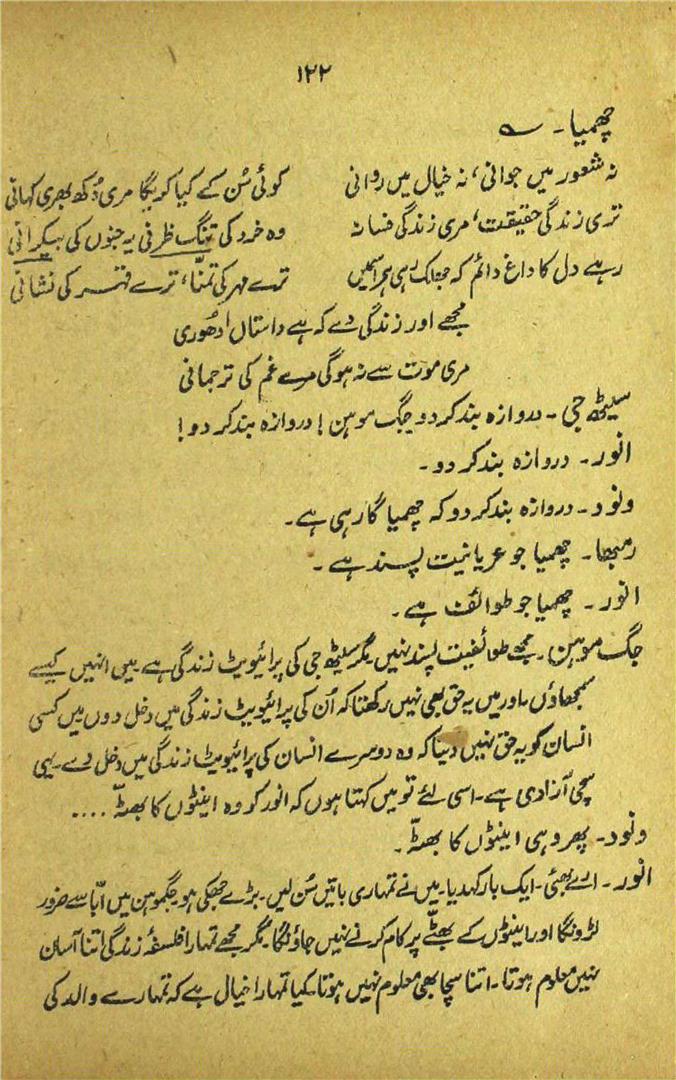 ۱۲۲
چھمیا۔ ؎
نہ شعور میں جوانی، نہ خیال میں روانی کوئی سُن کے کیا کریگا مری دُکھ بھری کہانی
تری زندگی حقیقت، مری زندگی فسانہ وہ خرد کی تنگ ظرفی یہ جنوں کی بیکرانی
رہے دل کا داغ دائم کہ جھلک رہی ہیں ترے مہر کی تمنّا، ترے قہر کی نشانی
مجھے اور زندگی دے کہ ہے داستاں ادھُوری
مری موت سے نہ ہوگی مرے غم کی ترجمانی
سیٹھ جی۔ دروازہ بند کر دو جگ موہن! دروازہ بند کر دو!
انور۔ دروازہ بند کر دو۔
ونود۔ دروازہ بند کر دو کہ چھمیا گا رہی ہے۔
رمبھا۔ چھمیا جو عریانیت پسند ہے۔
انور۔ چھمیا جو طوائف ہے۔
جگ موہن۔ مجھے طوائفیت پسند نہیں مگر سیٹھ جی کی پرائیویٹ زندگی ہے میں انہیں کیسے
سمجھاؤں اور میں یہ حق بھی نہیں رکھتا کہ اُن کی پرائیویٹ زندگی میں دخل دوں میں کسی
انسان کو یہ حق نہیں دیتا کہ وہ دوسرے انسان کی پرائیویٹ زندگی میں دخل دے۔ یہی
سچی آزادی ہے۔ اسی لئے تو میں کہتا ہوں کہ انور کو وہ اینٹوں کا بھٹّہ ....
ونود۔ پھر وہی اینٹوں کا بھٹّہ۔
انور۔ ارے بھئی۔ ایک بار کہدیا۔ میں نے تمہاری باتیں سُن لیں۔ بڑے جھکی ہو جگموہن میں ابّا سے ضرور
لڑونگا اور اینٹوں کے بھٹّے پر کام کرنے نہیں جاؤنگا۔ مگر مجھے تمہارا فلسفۂ زندگی اتنا آسان
نہیں معلوم ہوتا۔ اتنا سچا بھی معلوم نہیں ہوتا۔ کیا تمہارا خیال ہے کہ تمہارے والد کی